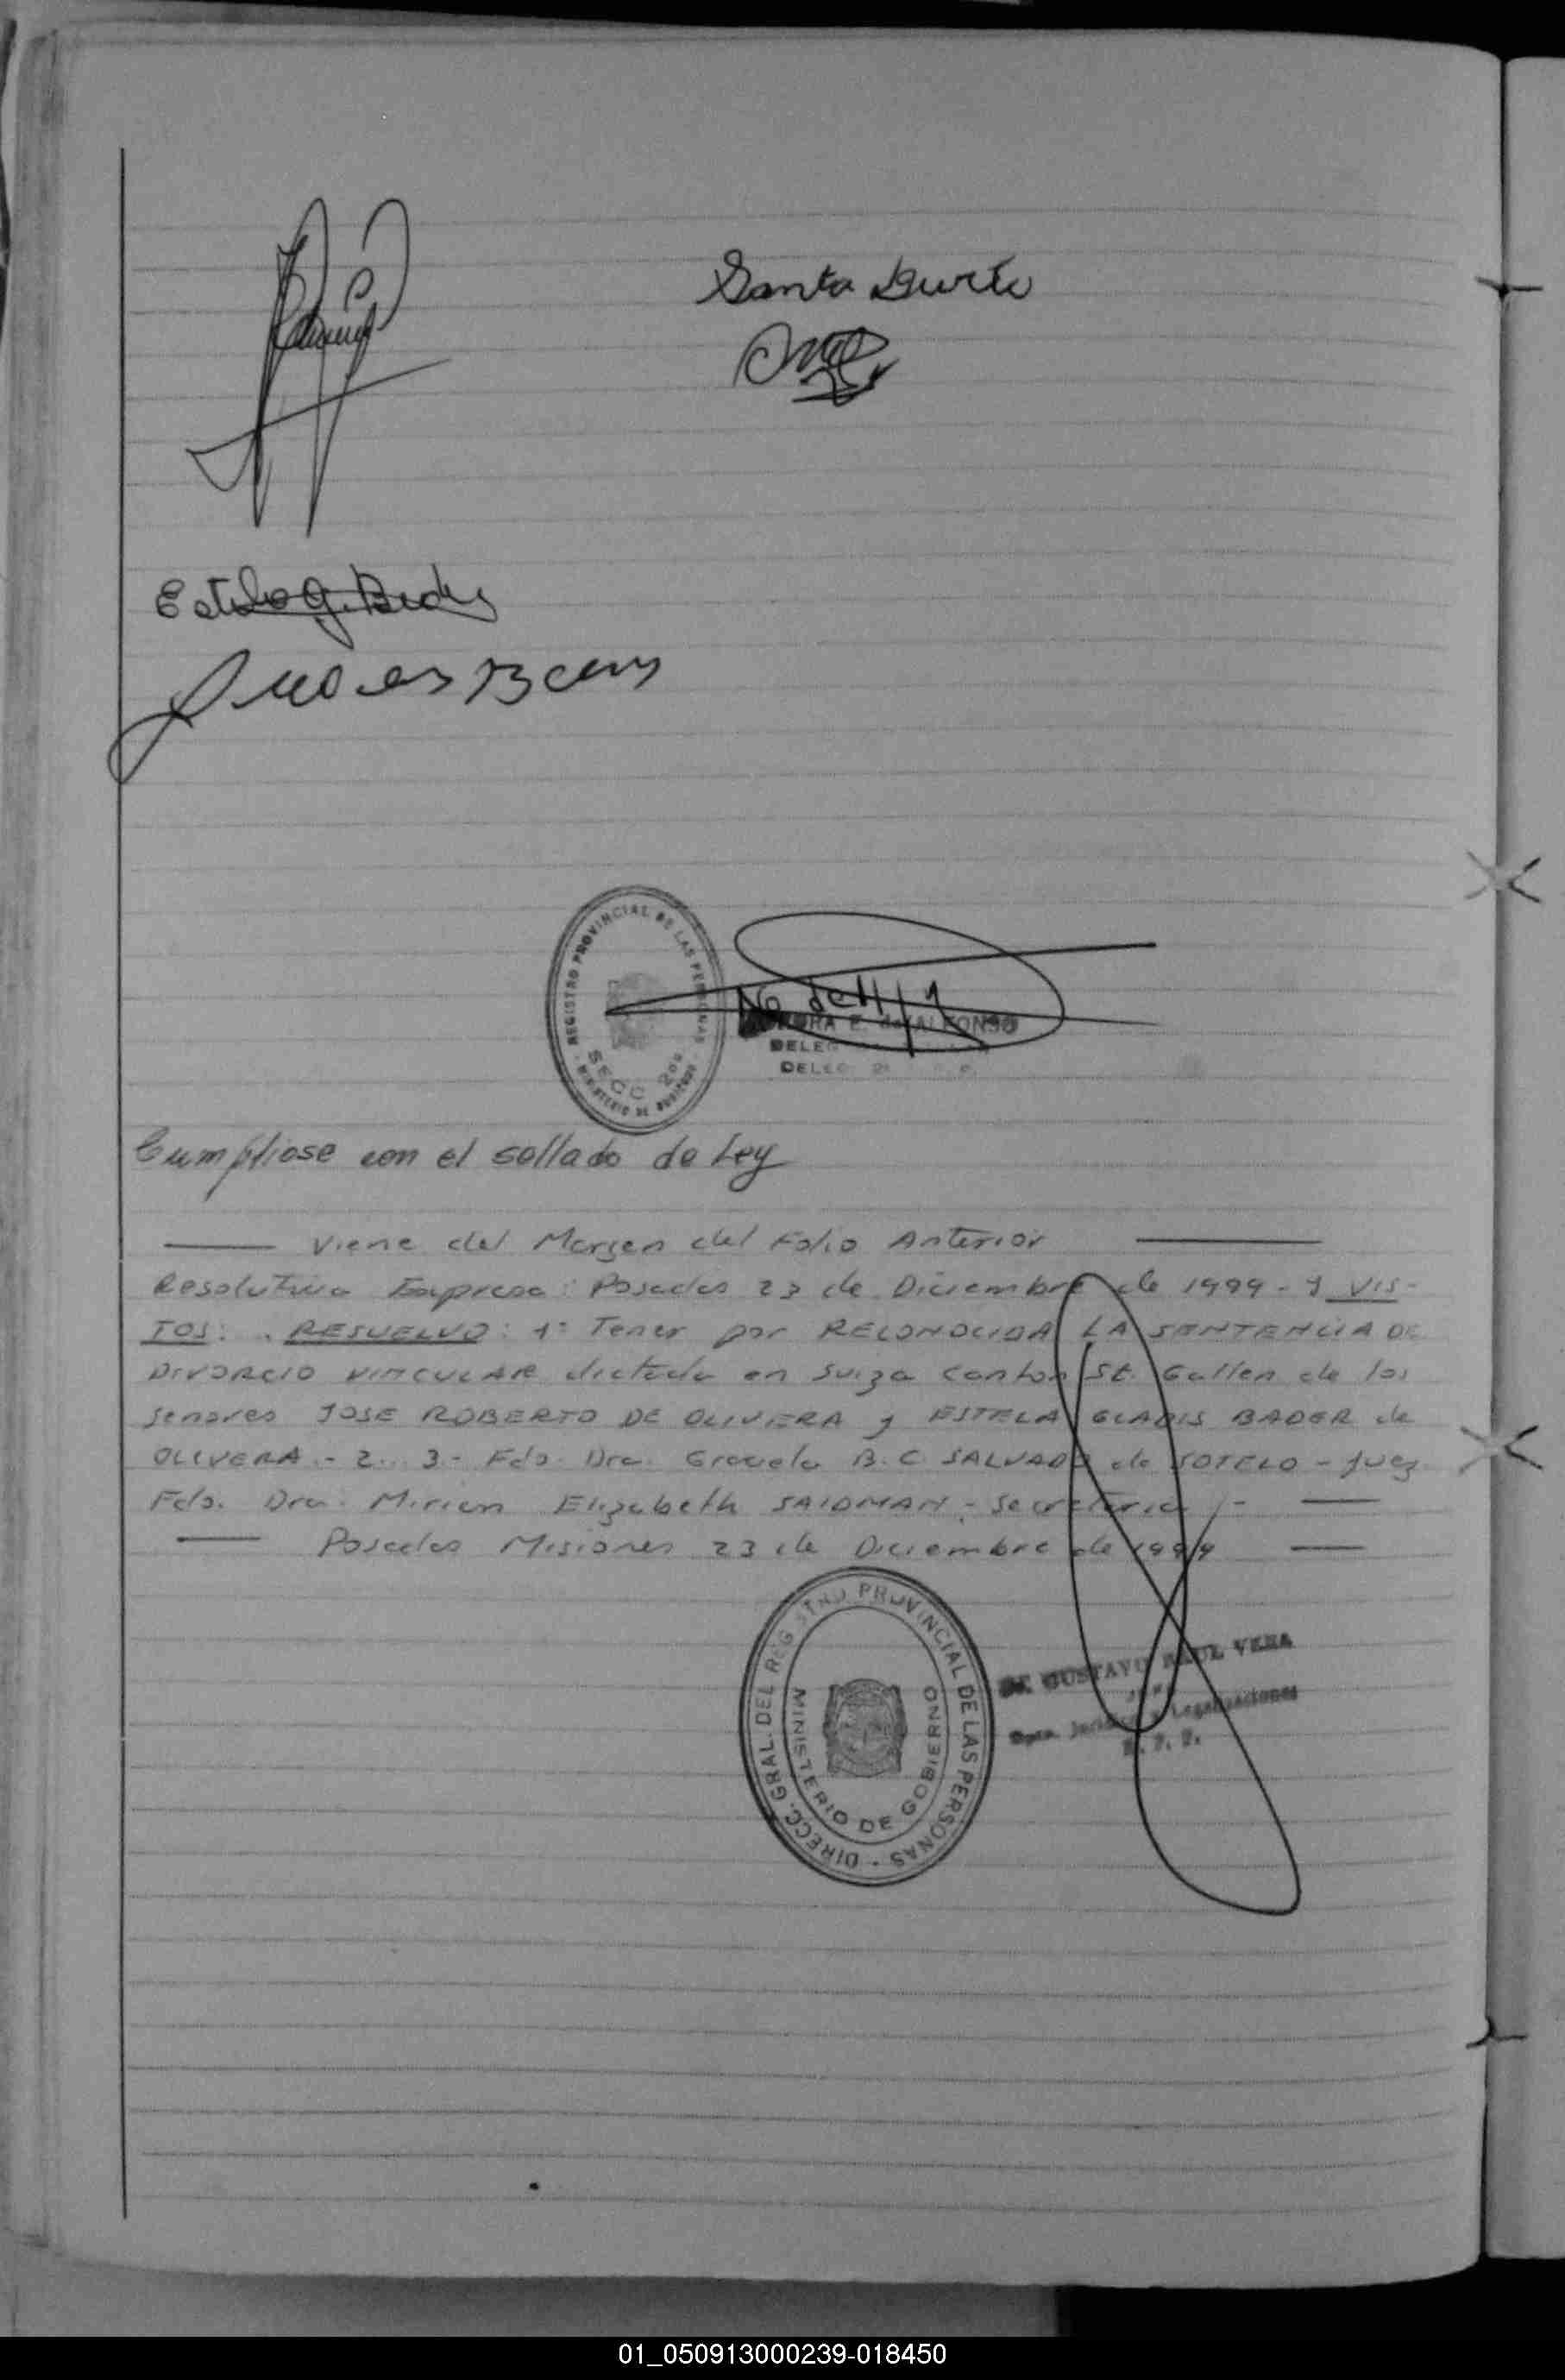 Santa Duarte
Cumpliose con el sellado de Ley
Viene del Margen del Folio Anterior
Resolutiva Expresa: Posadas 23 de Diciembre de 1999 - Y VIS-
TOS: . RESUELVO: 1° Tener por RECONOCIDA LA SENTENCIA DE
DIVORCIO VINCULAR dictada en Suiza Canton St. Gallen de los
señores JOSE ROBERTO DE OLIVERA y ESTELA GLADIS BADER de
OLIVERA - 2.. 3- Fdo. Dra. Graciela B. C. SALVADO de SOTELO - Juez
Fdo. Dra. Mirian Elizabeth SAIDMAN - Secretaria -
Posadas Misiones 23 de Diciembre de 1999
REGISTRO PROVINCIAL DE LAS PERSONAS
SECC 2da
E. de ALFONSO
DIRECC. GRAL. DEL REGISTRO PROVINCIAL DE LAS PERSONAS
MINISTERIO DE GOBIERNO
GUSTAVO RAUL VERA
01_050913000239-018450